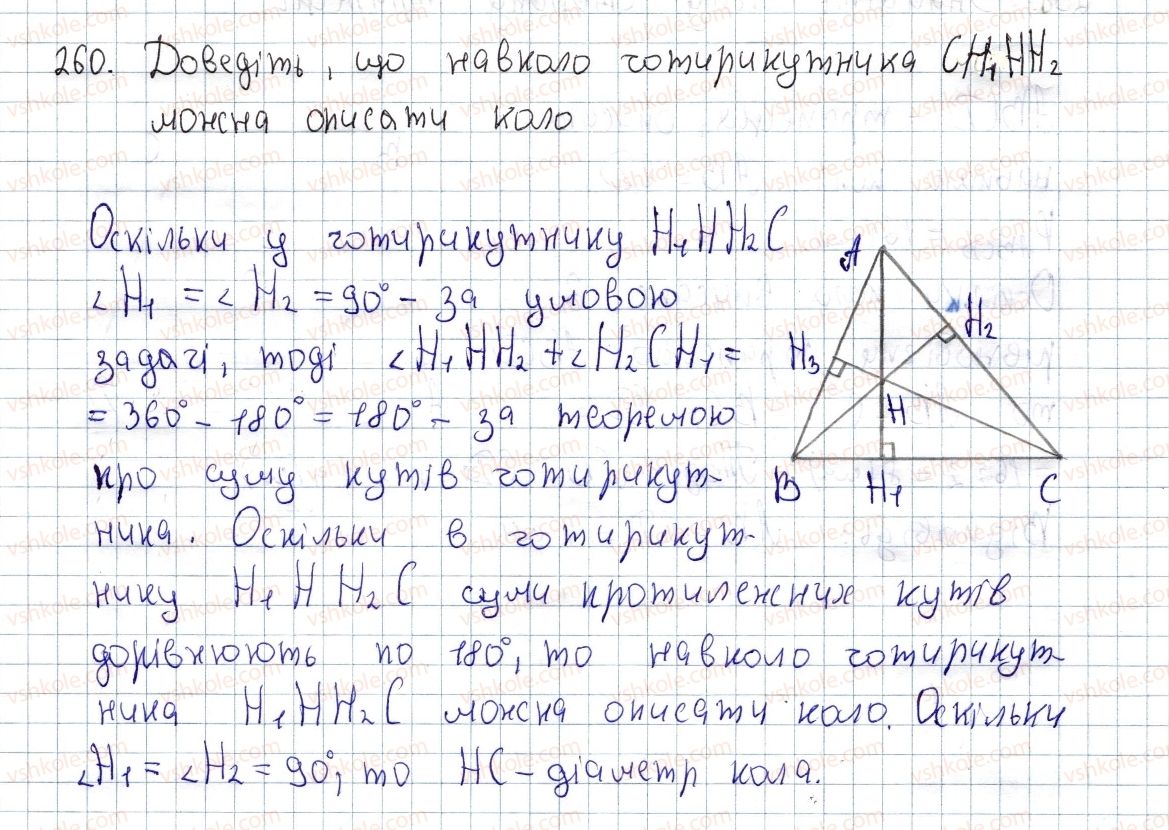 260. Доведіть, що навколо чотирикутника CH₁HH₂
можна описати коло
Оскільки у чотирикутнику H₁HH₂C
∠H₁ = ∠H₂ = 90° – за умовою
задачі, тоді ∠H₁HH₂ + ∠H₂CH₁ =
= 360° – 180° = 180° – за теоремою
про суму кутів чотирикут-
ника. Оскільки в чотирикут-
нику H₁HH₂C суми протилежних кутів
дорівнюють по 180°, то навколо чотирикут-
ника H₁HH₂C можна описати коло. Оскільки
∠H₁ = ∠H₂ = 90°, то HC – діаметр кола.
A
H₂
H₃
H
B
H₁
C
vshkole.com